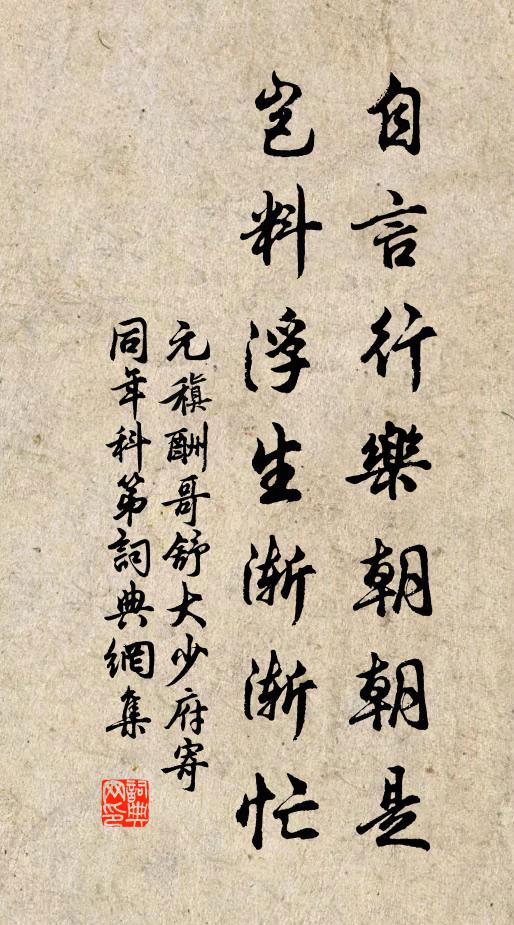 自言行樂朝朝是
豈料浮生漸漸忙
元稹酬哥舒大少府寄
同年科第詞典網集
詞典网印